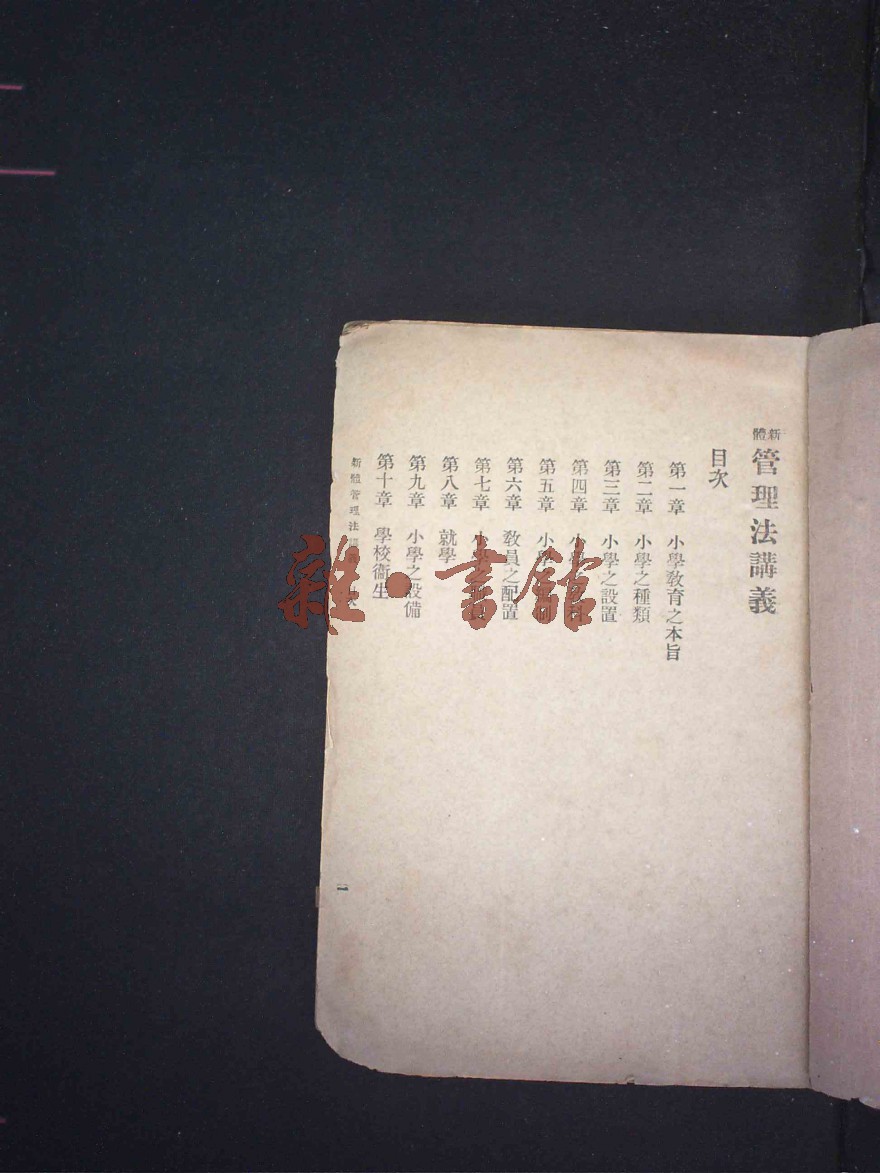 新體管理法講義
目次
第一章 小學教育之本旨
第二章 小學之種類
第三章 小學之設置
第四章 小學
第五章 小學
第六章 教員之配置
第七章 小學之
第八章 就學
第九章 小學之設備
第十章 學校衞生
新體管理法講義 目次
一
雜·書館